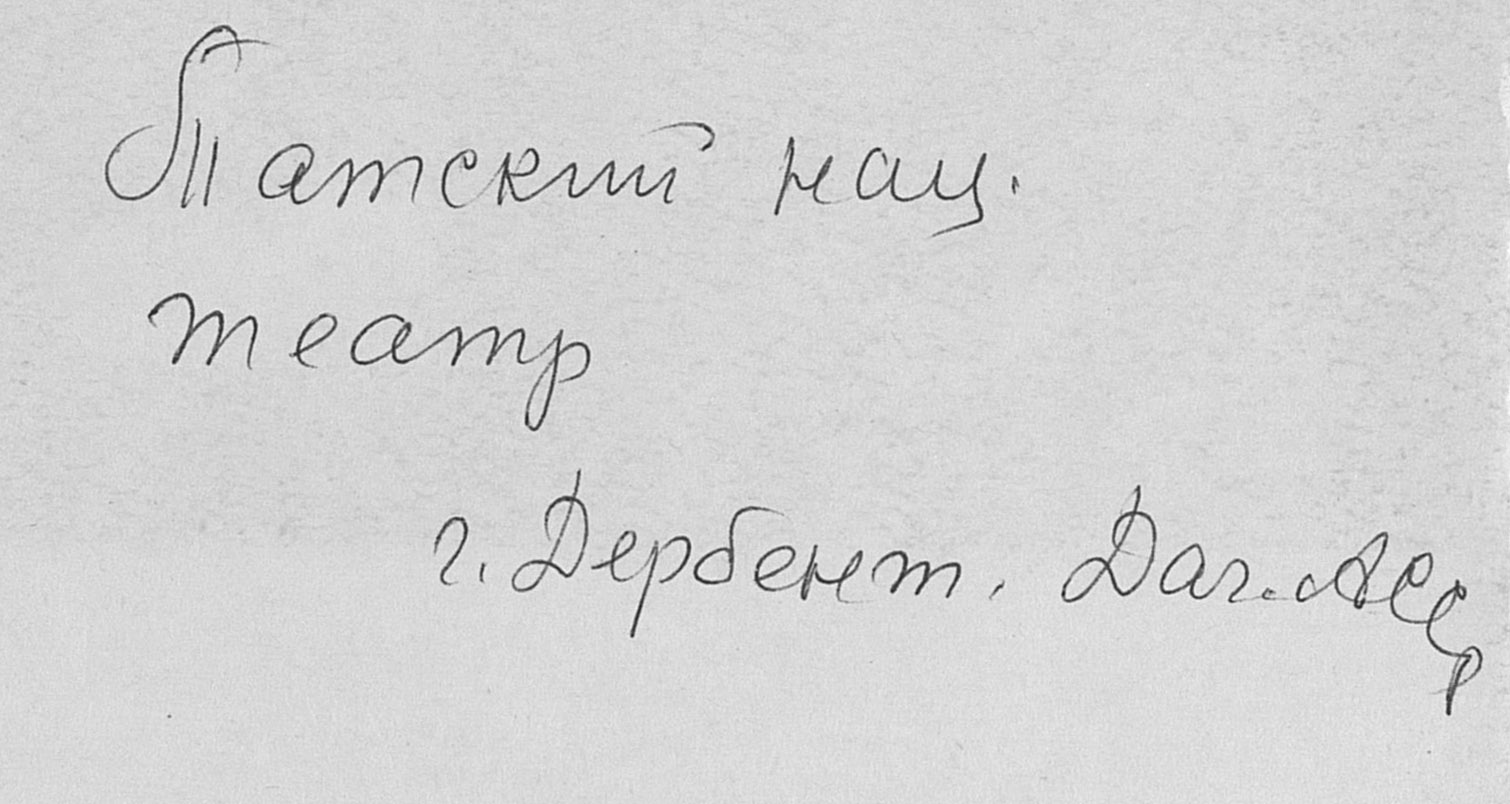 Татский нац.
театр
г. Дербент. Даг. АССР